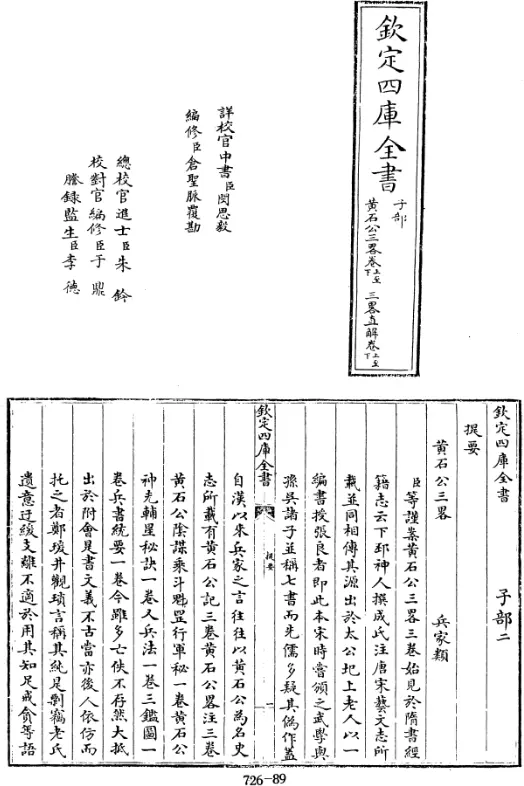 欽定四庫全書
子部
黃石公三畧卷上至下
三畧直解卷上至下
詳校官中書臣閔思毅
編修臣倉聖脈覆勘
總校官進士臣朱鈐
校對官編修臣于鼎
謄錄監生臣李德
欽定四庫全書 子部二
提要
黃石公三畧 兵家類
臣等謹案黃石公三畧三卷始見於隋書經
籍志云下邳神人撰成氏注唐宋藝文志所
載並同相傳其源出於太公圯上老人以一
編書授張良者即此本宋時嘗頒之武學與
孫吳諸子並稱七書而先儒多疑其偽作蓋
欽定四庫全書 提要 一
自漢以來兵家之言往往以黃石公為名史
志所載有黃石公記三卷黃石公畧注三卷
黃石公陰謀乘斗魁罡行軍秘一卷黃石公
神光輔星秘訣一卷又兵法一卷三鑑圖一
卷兵書統要一卷今雖多亡佚不存然大抵
出於附會是書文義不古當亦後人依仿而
托之者鄭瑗井觀瑣言稱其純是剽竊老氏
遺意迂緩支離不適於用其知足戒貪等語
726-89